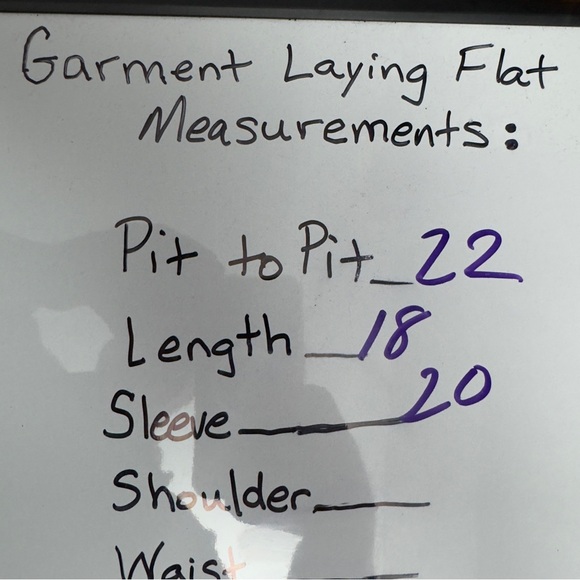 Garment Laying Flat
Measurements:
Pit to Pit_22
Length_18
Sleeve_20
Shoulder_
Waist_